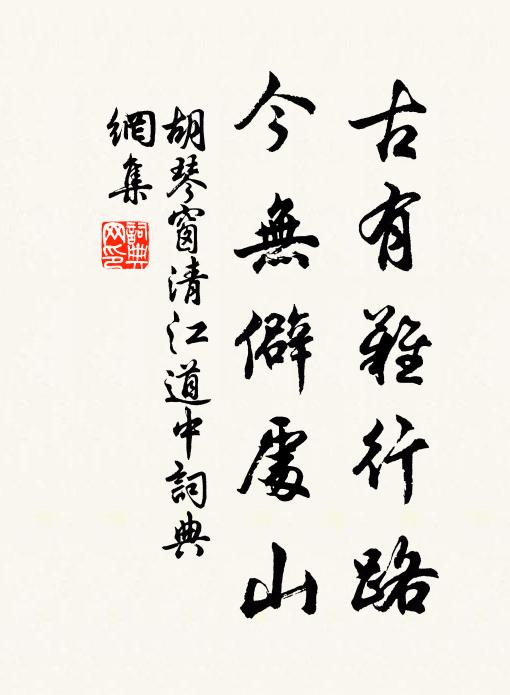 古有難行路
今無僻處山
胡琴窗清江道中詞典
網集
詞典
网印